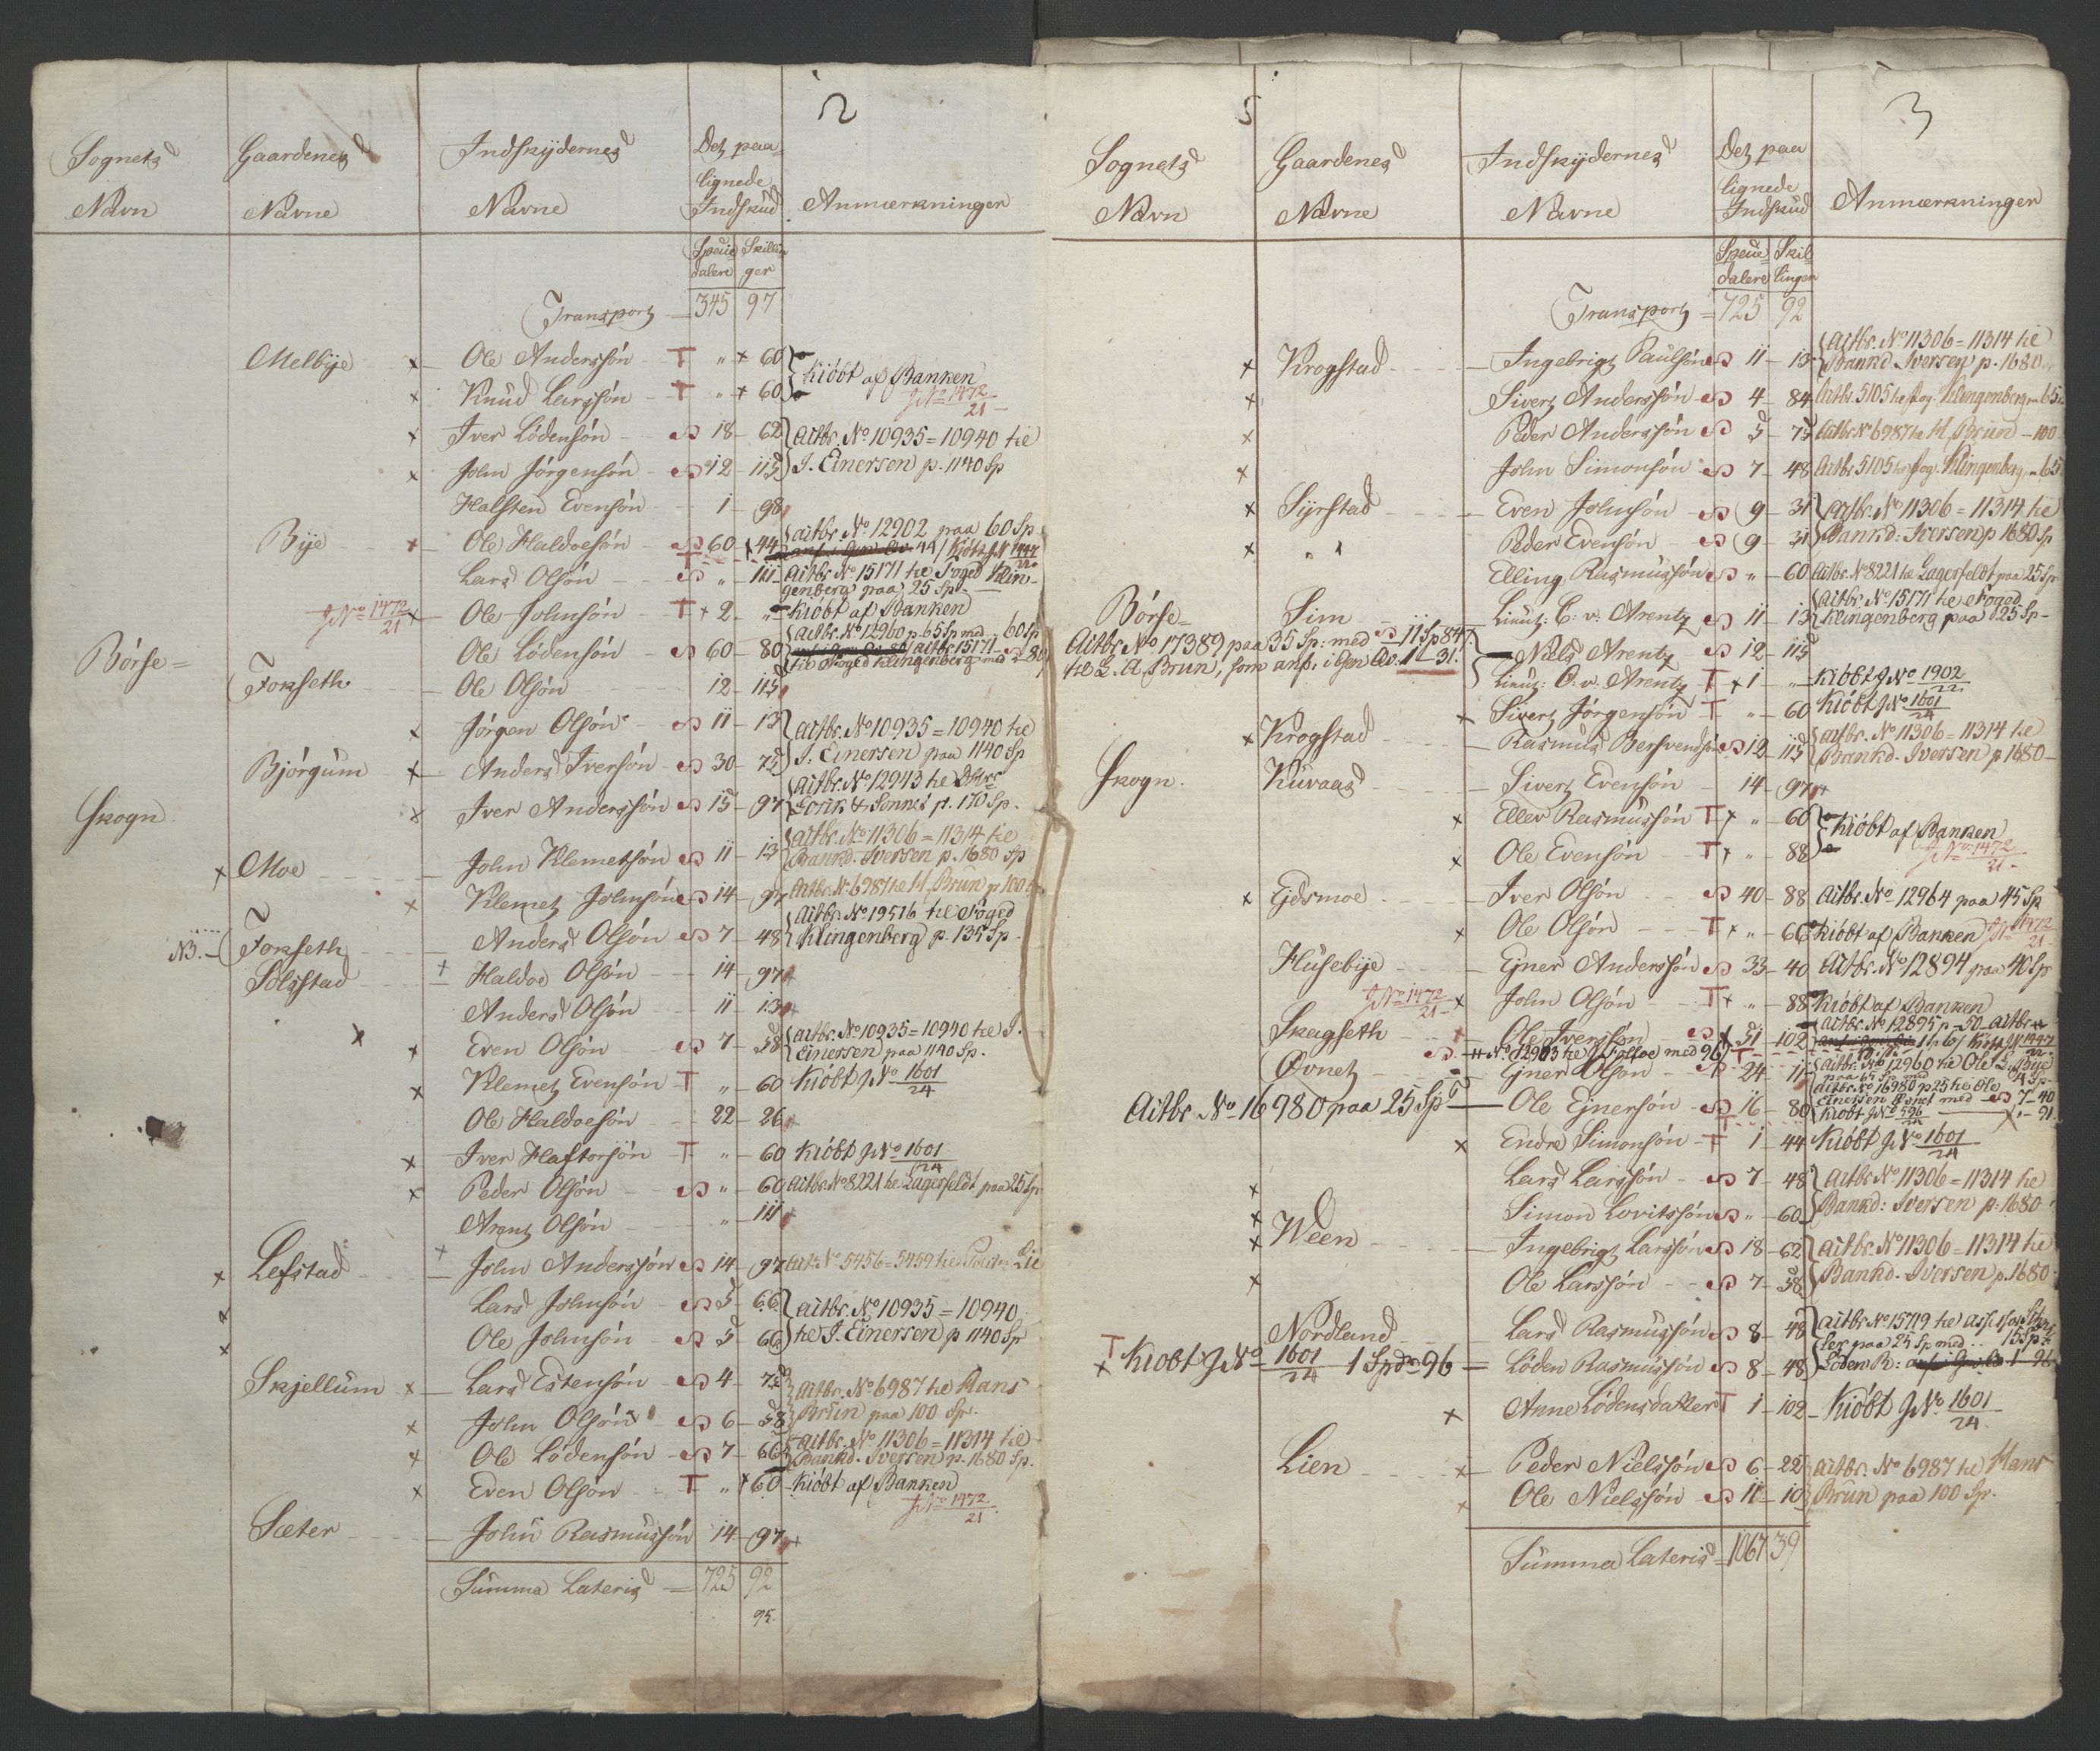 2
Sognets Navn
Gaardenes Navne
Indskydernes Navne
Det paalignede Indskud
Anmærkninger
Speciedaler Skillinger
Transport = 345 97
Melbye × Ole Andersøn T " × 60 Kiöbt af Banken
× Knud Larssön T " × 60 JNo 1472/21
× Iver Lödensön 18 62 Actbr. No 10935=10940 til
× John Jörgensön 12 115 J. Einersen p. 1140 Sp
Halsten Evensön 1 98
Actbr No 12902 paa 60 Sp
Bye × Ole Haldoesön 60 44
Lars Olsön " 111 Actbr No 15171 til Foged Klingenberg paa 25 Sp.
JNo 1472/21 × Ole Johnsön T × 2 " Kiöbt af Banken
Actbr. No 12960 p. 65 Sp med 60 Sp
Ole Lödensön 60 80
til Foged Klingenberg med
Börse=
Forseth Ole Olsön 12 115
× Jörgen Olsön 11 13 Actbr. No 10935=10940 til
Bjórgum × Anders Iversön 30 75 J. Einersen paa 1140 Sp
Actbr. No 12943 til
Skogn × Iver Anderssön 15 97 p. 170 Sp.
Actbr. No 11306=11314 til
× Moe John Klemetsön 11 13 Bankd. Iversen p. 1680 Sp
× Klemet Johnsön 14 97 Actbr. No 6987 til H. Brun p 100
Actbr. No 19516 til Foged
NB. Forseth Anders Olsön 7 48 Klingenberg p. 135 Sp
Solsstad Haldoe Olsön 14 97
Anders Olsön 11 13
× Even Olsön 7 58 Actbr. No 10935=10940 til J.
Einersen paa 1140 Sp.
× Klemet Evensön T " 60 Kiöbt JNo 1601/24
Ole Haldoesön 22 26
× Iver Haftorsön T " 60 Kiöbt JNo 1601/24
× Peder Olsön " 60 Actbr. No 8221 til Lagerfeldt paa 25 Sp
Arent Olsön " 111
× Lefstad John Anderssön 14 97 Act: No 5456=5459 til Lie
× Lars Johnsön 5 66 Actbr. No 10935=10940
× Ole Johnsön 5 66 til J. Einersen p 1140 Sp
Skjellum × Lars Estensön 4 75 Actbr. No 6987 til Hans
× John Olsön 6 58 Brun paa 100 Sp.
Actbr. No 11306=11314 til
× Ole Lödensön 7 66 Bankd. Iversen p. 1680 Sp.
× Even Olsön T " × 60 Kiöbt af Banken
JNo 1472/21
Sæter John Rasmussön 14 97
Summa Lateris = 725 92
95.
3
Sognets Navn
Gaardenes Navne
Indskydernes Navne
Det paalignede Indskud
Anmærkninger
Speciedalere Skillinger
Transport = 725 92
Actbr. No 11306=11314 til
× Krogstad Ingebrigt Paulsön 11 13 Bankd. Iversen p. 1680
× Sivert Anderssön 4 84 Actbr. 5105 til Fog. Klingenberg 65
× Peder Anderssön 5 75 Actbr No 6987 til H. Brun 100
× John Simonsön 7 48 Actbr 5105 til Fog. Klingenberg 65
× Syrstad Even Johnsön 9 31 Actbr. No 11306=11314 til
× " Peder Evensön 9 31 Bankd: Iversen p 1680 Sp
Elling Rasmussön " 60 Actbr. No 8221 til Lagerfeldt paa 25 Sp
Börse= Sim Lieut: C. v. Arentz 11 13 Actbr. No 15171 til Foged Klingenberg paa 125 Sp
Actbr No 17389 paa 35 Sp: med 11 Sp 84
Niels Arentz 12 115
til L. A. Brun, som anf. i Gen
Lieut: C. v. Arentz T × 1 " Kiöbt JNo 1902/22
× Sivert Jörgensön T " 60 Kiöbt JNo 1601/24
× Krogstad Rasmus 12 115 Actbr. No 11306=11314 til
Bankd. Iversen p 1680
Skogn. Kuvaas Sivert Evensön 14 97
× Eller Rasmussön T × " 60 Kiöbt af Banken
× Ole Evensön T × " 88 JNo 1472/21
× Eidsmoe Iver Olsön 40 88 Actbr. No 12964 paa 45 Sp
× Ole Olsön T × " 60 Kiöbt af Banken JNo 1472/21
Husebye Ejner Anderssön 33 40 Actbr. No 12894 paa 40 Sp
JNo 1472/21 × John Olsön T × " 88 Kiöbt af Banken
Skagseth Ole Iverssön 51 102 Actbr. No 12895 p. 50
No 12903 til med 96
Øvnet Ejner Olsön 24 11 Actbr. No 12960 til Ole L. Bye
Actbr No 16980 paa 25 Sp Ole Ejnersön 16 80 Actbr. No 16980 p 25 til Ole Einersen Øvnet med 7 40
Kiöbt JNo 596
× Endre Simonsön T 1 44 Kiöbt JNo 1601/24
× Lars Larssön 7 48 Actbr. No 11306=11314 til
× Simon Lovitssön " 60 Bankd: Iversen p. 1680
× Ween Ingebrigt Larssön 18 62 Actbr. No 11306=11314 til
× Ole Larssön 7 58 Bankd. Iversen p. 1680
Nordland Lars Rasmussön 8 48 Actbr No 15719 til
paa 25 Sp med 15 Sp
T × Kiöbt JNo 1601/24 1 Spdr 96 = Löden Rasmussön 8 48 Löden R:
× Anne Lödensdatter T 1 102 Kiöbt JNo 1601/24
Lien × Peder Nielssön 6 22 Actbr. No 6987 til Hans
× Ole Nielssön 11 10 Brun paa 100 Sp.
Summa Lateris = 1067 39